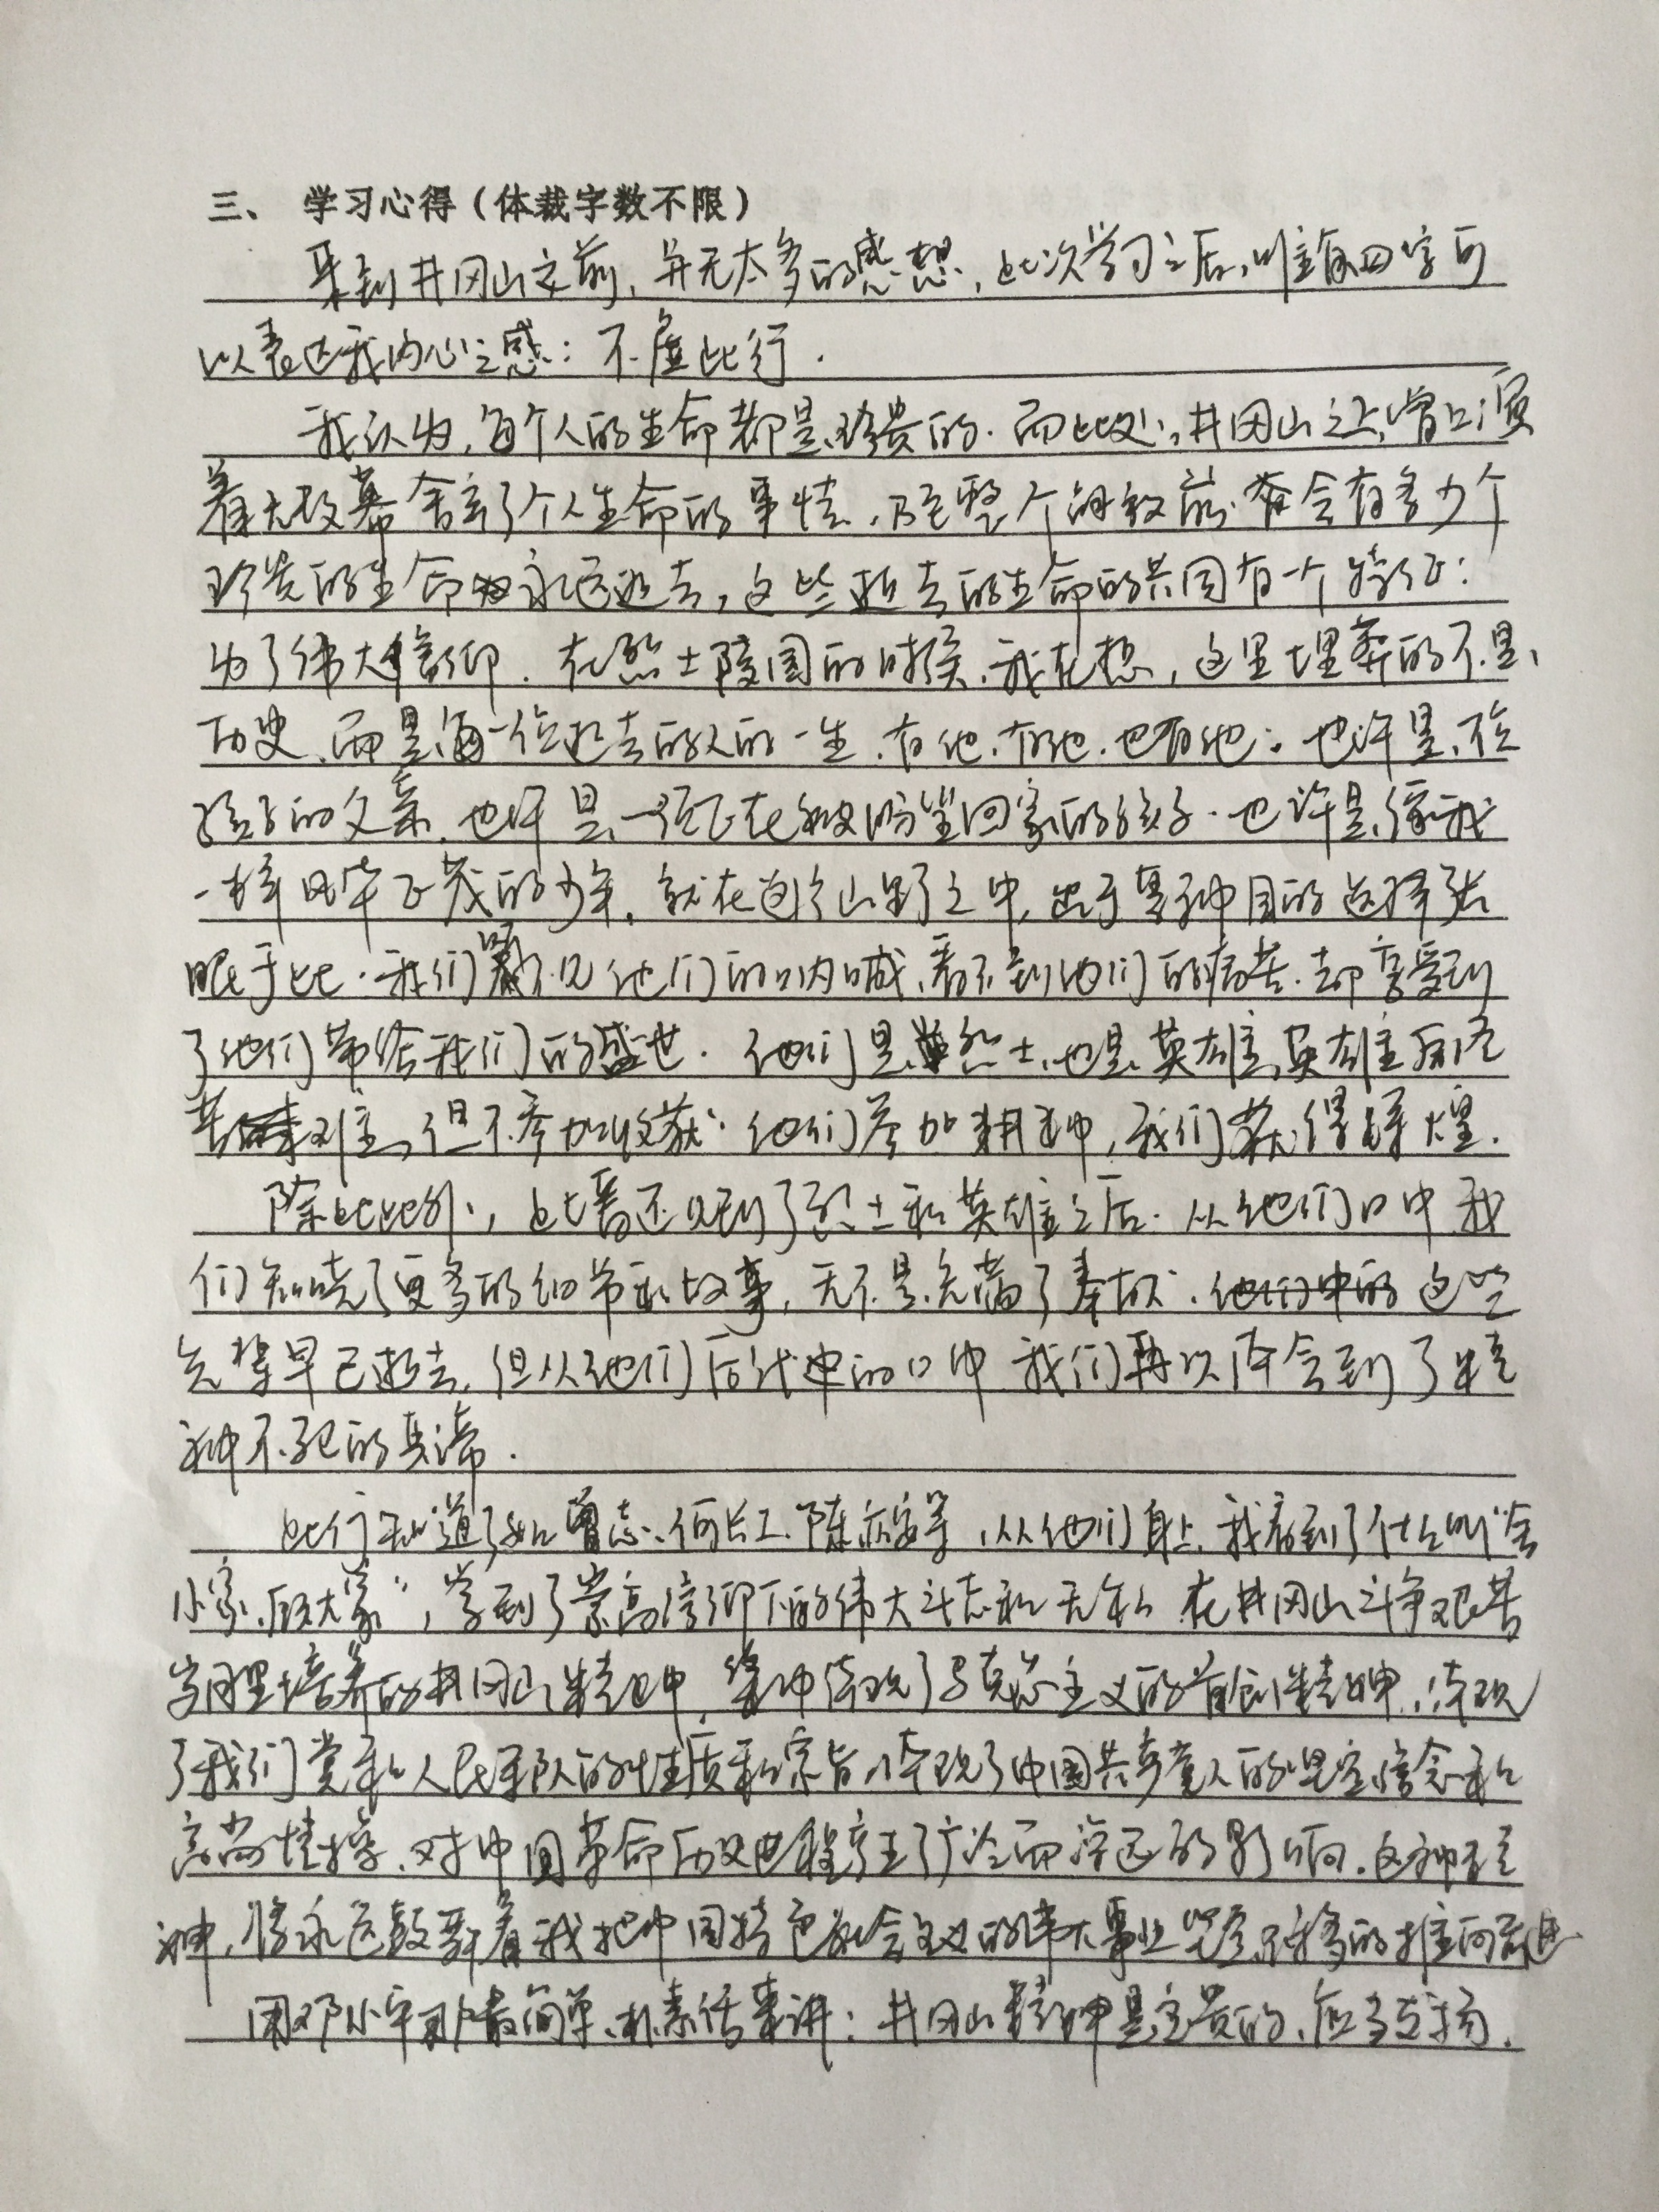 三、 学习心得（体裁字数不限）
来到井冈山之前，并无太多的感想，此次学习之后，唯有四字可
以表达我内心之感：不虚此行．
我认为，每个人的生命都是珍贵的．而此处，井冈山之上，曾上演
着无数幕舍弃了个人生命的事情，乃至整个解放前，会有多少个
珍贵的生命永远逝去，这些逝去的生命的共同有一个特征：
为了伟大信仰．在烈士陵园的时候，我在想，这里埋葬的不是
历史，而是每一位逝去的人的一生．有他．有他．也有他．也许是一位
孩子的父亲，也许是一位正在被盼望回家的孩子．也许是像我
一样风华正茂的少年，就在这片山野之中，出于某种目的选择长
眠于此．我们听不见他们的呐喊，看不到他们的病苦．却享受到
了他们带给我们的盛世．他们是烈士，也是英雄，英雄历尽
苦难，但不参加收获．他们参加耕种，我们获得辉煌．
除此此外，此番还见到了烈士和英雄之后．从他们口中我
们知晓了更多的细节和故事，无不是充满了奉献．这些
先辈早已逝去，但从他们后代的口中我们再次体会到了精
神不死的真谛．
此行知道了如曾志、何长工、陈亦安等，从他们身上，我看到了什么叫“舍
小家，顾大家”，学到了崇高信仰下的伟大斗志和无私 在井冈山斗争艰苦
岁月里培养的井冈山精神，集中体现了马克思主义的首创精神，体现
了我们党和人民军队的性质和宗旨，体现了中国共产党人的坚定信念和
高尚情操，对中国革命历史进程产生了广泛而深远的影响．这种精
神，将永远鼓舞着我把中国特色社会主义的伟大事业坚定不移的推向前进
用邓小平最简单、朴素话来讲：井冈山精神是宝贵的，应当发扬．